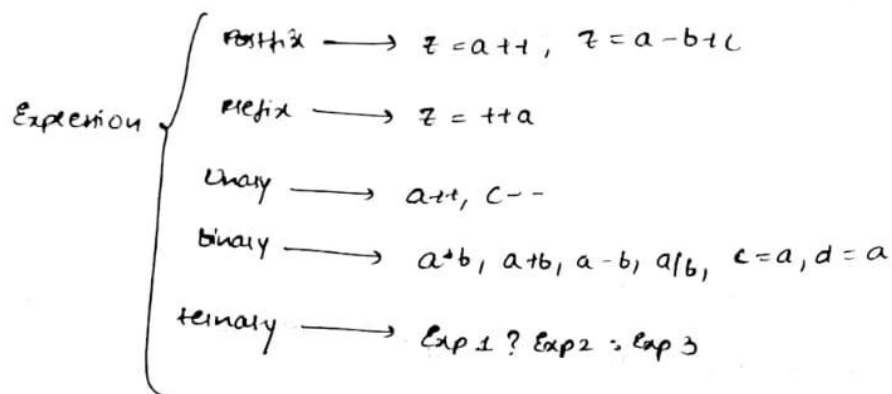 Expression
Postfix → z = a++, z = a-b+c
Prefix → z = ++a
Unary → a++, c--
binary → a*b, a+b, a-b, a/b, c=a, d=a
ternary → Exp 1 ? Exp 2 : Exp 3